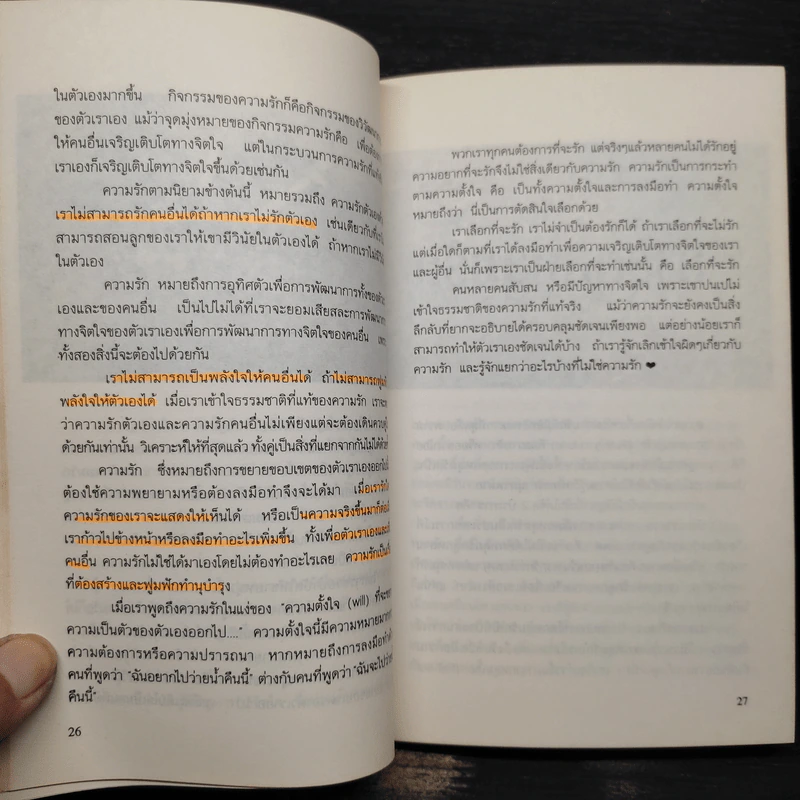 ในตัวเองมากขึ้น กิจกรรมของความรักก็คือกิจกรรมของวิวัฒนาการ
ของตัวเราเอง แม้ว่าจุดมุ่งหมายของกิจกรรมความรักคือ เพื่อ
ให้คนอื่นเจริญเติบโตทางจิตใจ แต่ในกระบวนการความรักที่แท้
เราเองก็เจริญเติบโตทางจิตใจขึ้นด้วยเช่นกัน
ความรักตามนิยามข้างต้นนี้ หมายรวมถึง ความรักตัวเอง
เราไม่สามารถรักคนอื่นได้ถ้าหากเราไม่รักตัวเอง เช่นเดียวกับที่
สามารถสอนลูกของเราให้เขามีวินัยในตัวเองได้ ถ้าหากเราไม่มี
ในตัวเอง
ความรัก หมายถึงการอุทิศตัวเพื่อการพัฒนาการทั้งของตัว
เองและของคนอื่น เป็นไปไม่ได้ที่เราจะยอมเสียสละการพัฒนา
ทางจิตใจของตัวเราเองเพื่อการพัฒนาการทางจิตใจของคนอื่น เพราะ
ทั้งสองสิ่งนี้จะต้องไปด้วยกัน
เราไม่สามารถเป็นพลังใจให้คนอื่นได้ ถ้าไม่สามารถ
พลังใจให้ตัวเองได้ เมื่อเราเข้าใจธรรมชาติที่แท้ของความรัก เรา
ว่าความรักตัวเองและความรักคนอื่นไม่เพียงแต่จะต้องเดินควบคู่
ด้วยกันเท่านั้น วิเคราะห์ให้ที่สุดแล้ว ทั้งคู่เป็นสิ่งที่แยกจากกันไม่ได้
ความรัก ซึ่งหมายถึงการขยายขอบเขตของตัวเราเองออกไป
ต้องใช้ความพยายามหรือต้องลงมือทำจึงจะได้มา เมื่อเรารัก
ความรักของเราจะแสดงให้เห็นได้ หรือเป็นความจริงขึ้นมาก็ต่อ
เราก้าวไปข้างหน้าหรือลงมือทำอะไรเพิ่มขึ้น ทั้งเพื่อตัวเราเองและ
คนอื่น ความรักไม่ใช่ได้มาเองโดยไม่ต้องทำอะไรเลย ความรักเป็น
ที่ต้องสร้างและฟูมฟักทำนุบำรุง
เมื่อเราพูดถึงความรักในแง่ของ "ความตั้งใจ (will) ที่จะ
ความเป็นตัวของตัวเองออกไป...." ความตั้งใจนี้มีความหมายมาก
ความต้องการหรือความปรารถนา หากหมายถึงการลงมือทำ
คนที่พูดว่า "ฉันอยากไปว่ายน้ำคืนนี้" ต่างกับคนที่พูดว่า "ฉันจะไปว่าย
คืนนี้"
26
พวกเราทุกคนต้องการที่จะรัก แต่จริงๆแล้วหลายคนไม่ได้รักอยู่
ความอยากที่จะรักจึงไม่ใช่สิ่งเดียวกับความรัก ความรักเป็นการกระทำ
ตามความตั้งใจ คือ เป็นทั้งความตั้งใจและการลงมือทำ ความตั้งใจ
หมายถึงว่า นี่เป็นการตัดสินใจเลือกด้วย
เราเลือกที่จะรัก เราไม่จำเป็นต้องรักก็ได้ ถ้าเราเลือกที่จะไม่รัก
แต่เมื่อใดก็ตามที่เราได้ลงมือทำเพื่อความเจริญเติบโตทางจิตใจของเรา
และผู้อื่น นั่นก็เพราะเราเป็นฝ่ายเลือกที่จะทำเช่นนั้น คือ เลือกที่จะรัก
คนหลายคนสับสน หรือมีปัญหาทางจิตใจ เพราะเขาปนเปไม่
เข้าใจธรรมชาติของความรักที่แท้จริง แม้ว่าความรักจะยังคงเป็นสิ่ง
ลึกลับที่ยากจะอธิบายได้ครอบคลุมชัดเจนเพียงพอ แต่อย่างน้อยเราก็
สามารถทำให้ตัวเราเองชัดเจนได้บ้าง ถ้าเรารู้จักเลิกเข้าใจผิดๆเกี่ยวกับ
ความรัก และรู้จักแยกว่าอะไรบ้างที่ไม่ใช่ความรัก ❤
27